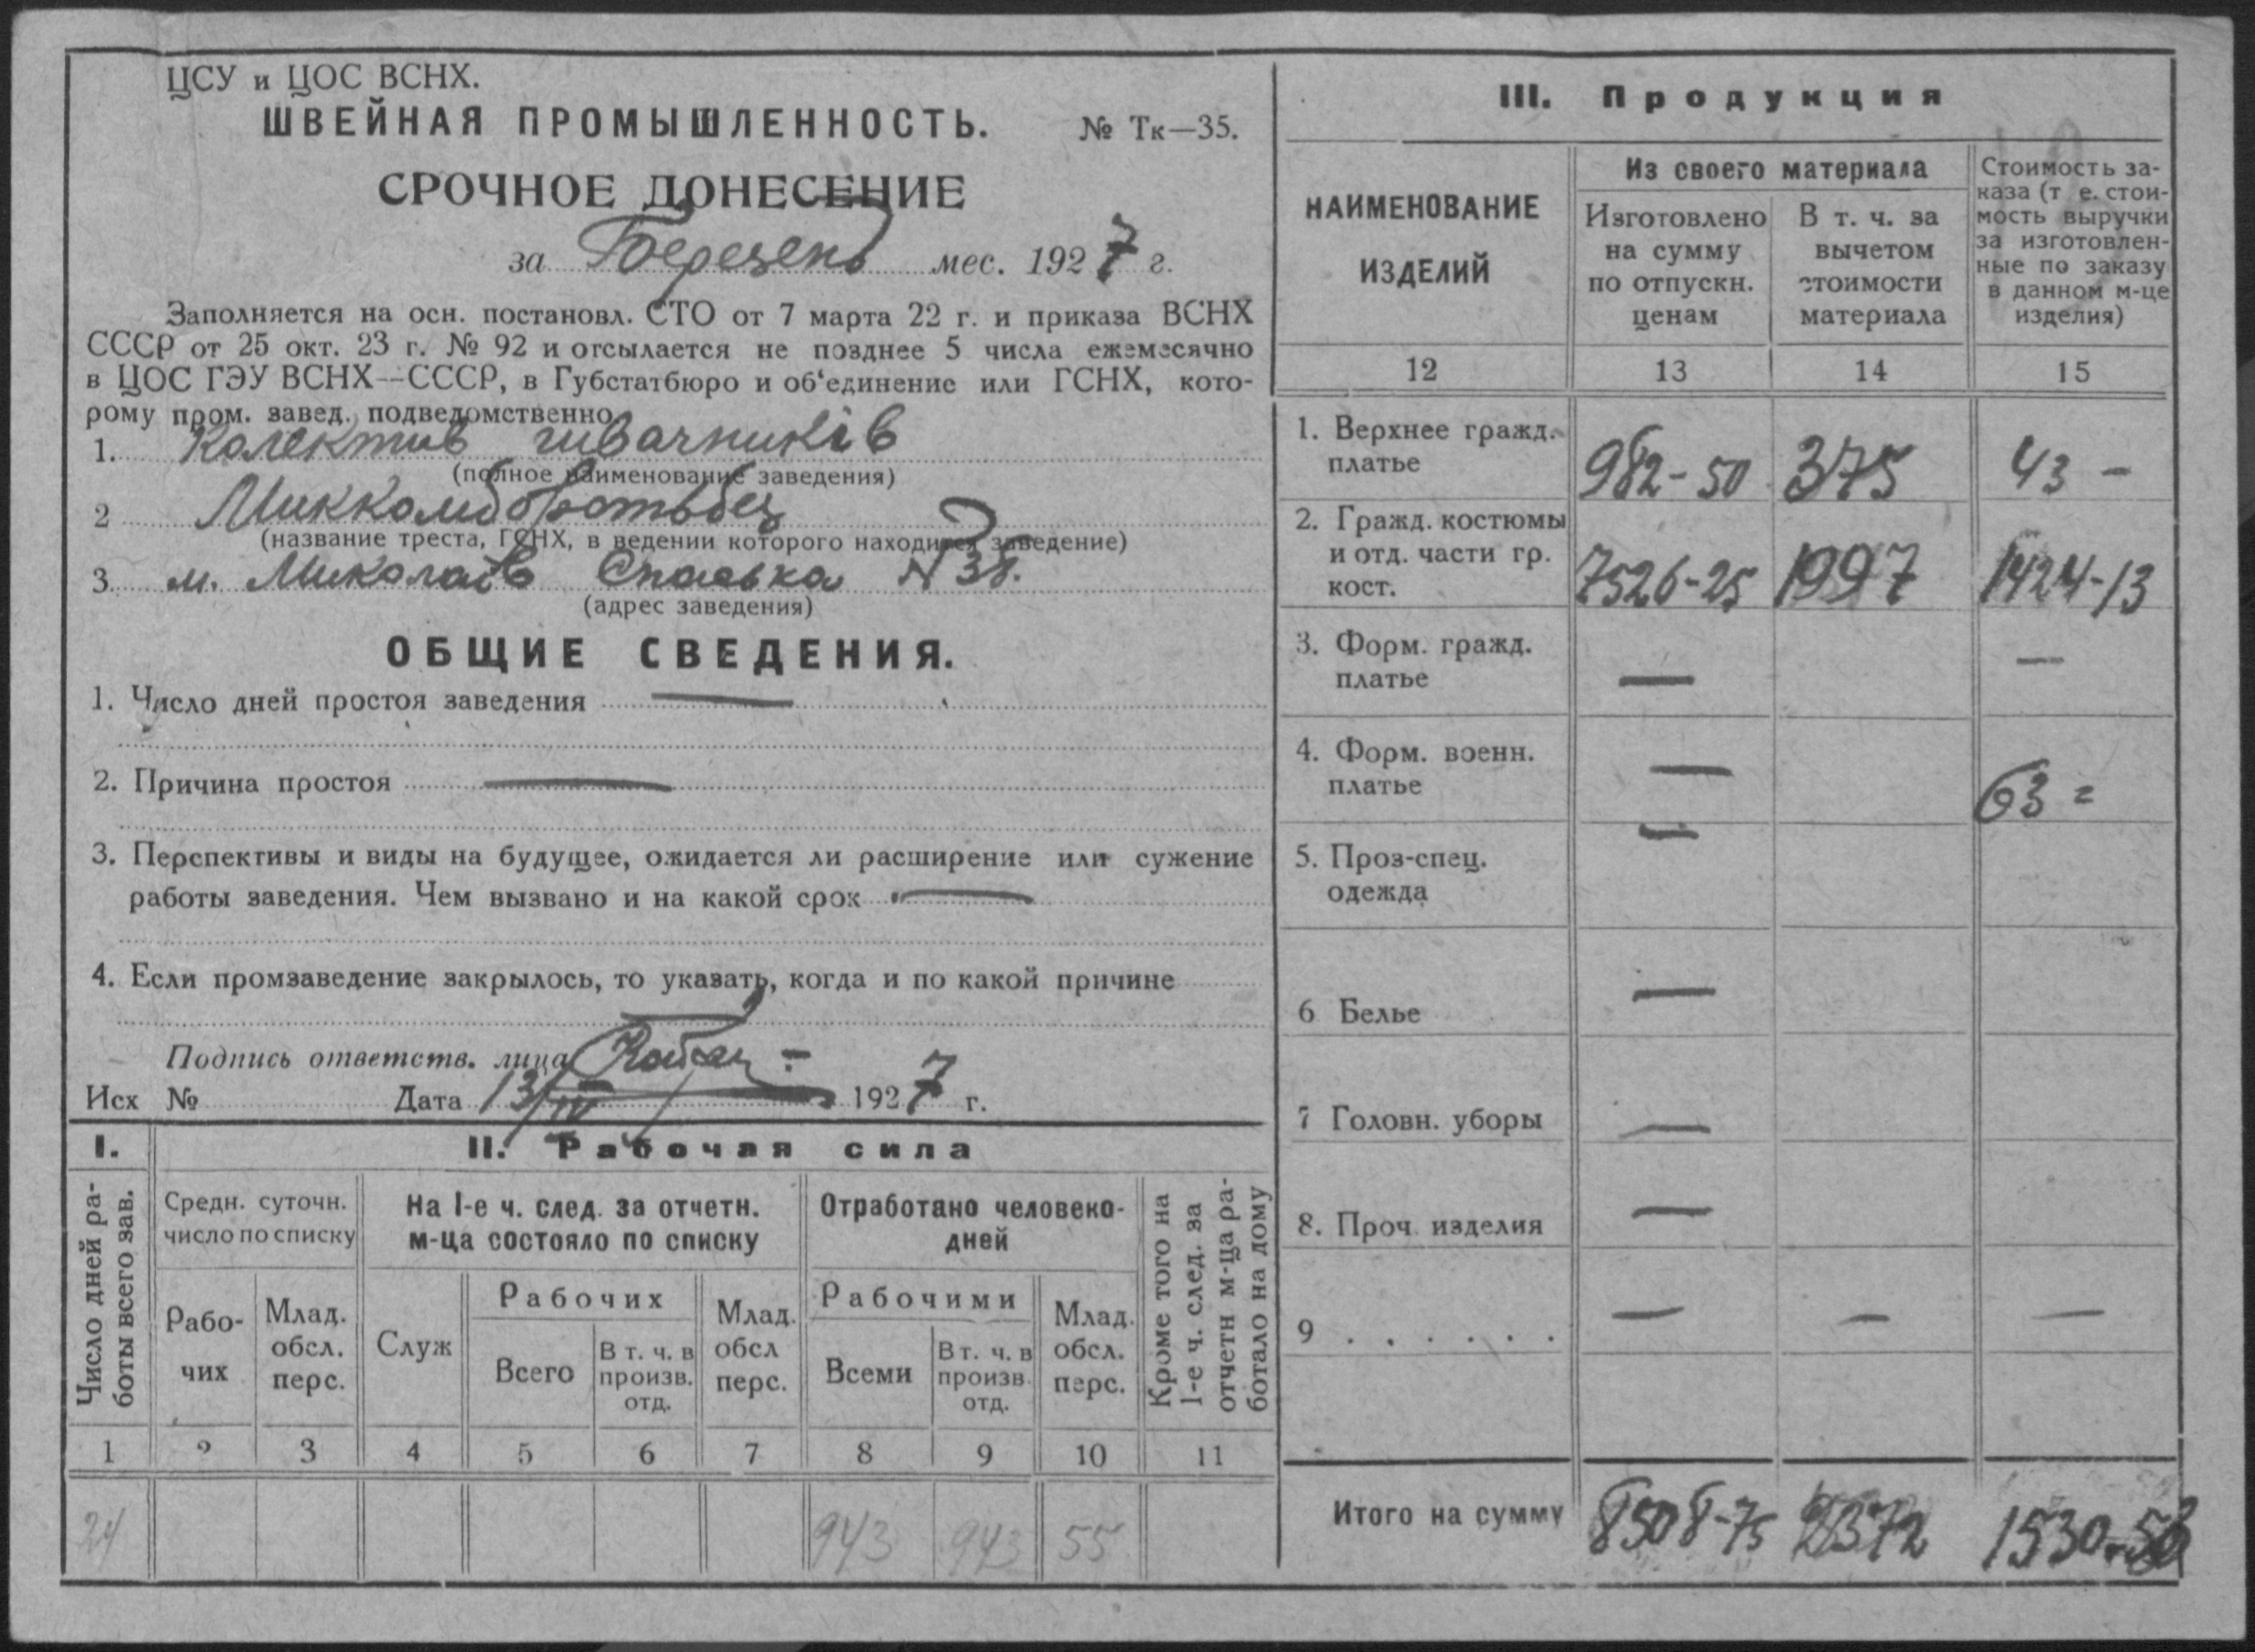 ЦСУ и ЦОС ВСНХ.
ШВЕЙНАЯ ПРОМЫШЛЕННОСТЬ. № Тк—35.
СРОЧНОЕ ДОНЕСЕНИЕ
за Березень мес. 1927 г.
Заполняется на осн. постановл. СТО от 7 марта 22 г. и приказа ВСНХ
СССР от 25 окт. 23 г. № 92 и отсылается не позднее 5 числа ежемесячно
в ЦОС ГЭУ ВСНХ—СССР, в Губстатбюро и об‘единение или ГСНХ, кото-
рому пром. завед. подведомственно
1. Колектив швачників
(полное наименование заведения)
2 Миккомборотьбез
(название треста, ГСНХ, в ведении которого находится заведение)
3. м. Миколаїв Спаська N 38.
(адрес заведения)
ОБЩИЕ СВЕДЕНИЯ.
1. Число дней простоя заведения —
2. Причина простоя —
3. Перспективы и виды на будущее, ожидается ли расширение или сужение
работы заведения. Чем вызвано и на какой срок —
4. Если промзаведение закрылось, то указать, когда и по какой причине
Подпись ответств. лица
Исх № Дата 13/IV 1927 г.
I. II. Рабочая сила
Число дней ра-
боты всего зав.
Средн. суточн.
число по списку
На 1-е ч. след. за отчетн.
м-ца состояло по списку
Отработано человеко-
дней
Кроме того на
1-е ч. след. за
отчетн м-ца ра-
ботало на дому
Рабо-
чих
Млад.
обсл.
перс.
Служ
Рабочих
Всего
В т. ч. в
произв.
отд.
Млад.
обсл
перс.
Рабочими
Всеми
В т. ч. в
произв.
отд.
Млад.
обсл.
перс.
1 2 3 4 5 6 7 8 9 10 11
24 943 943 55
III. Продукция
НАИМЕНОВАНИЕ
ИЗДЕЛИЙ
Из своего материала
Изготовлено
на сумму
по отпускн.
ценам
В т. ч. за
вычетом
стоимости
материала
Стоимость за-
каза (т е. стои-
мость выручки
за изготовлен-
ные по заказу
в данном м-це
изделия)
12 13 14 15
1. Верхнее гражд.
платье 982-50 375 43 -
2. Гражд. костюмы
и отд. части гр.
кост. 7526-25 1997 1424-13
3. Форм. гражд.
платье — —
4. Форм. военн.
платье — 63 =
5. Проз-спец.
одежда —
6 Белье —
7 Головн. уборы —
8. Проч. изделия —
9 . . . . . . — — —
Итого на сумму 8508-75 2372 1530-